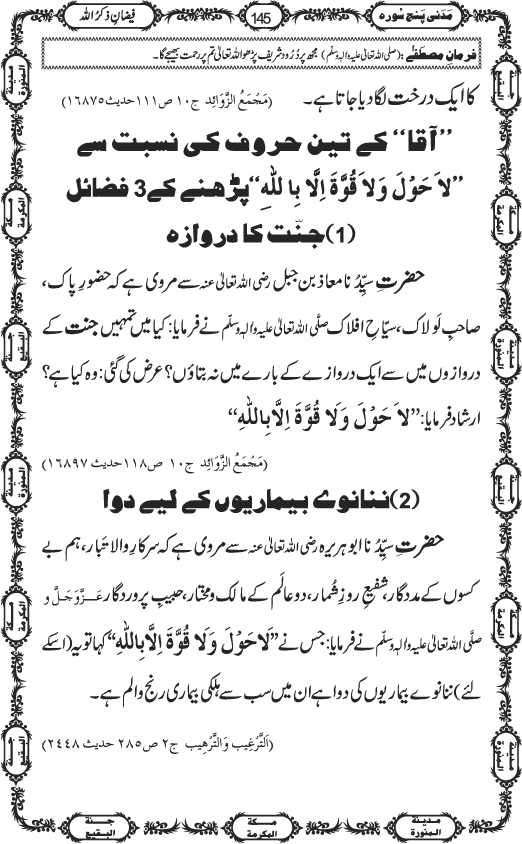 مَدَنی پَنج سُورہ
145
فیضانِ ذکرُ اللہ
فرمانِ مصطفٰے : (صلی اللہ تعالیٰ علیہ والہٖ وسلّم) مجھ پر دُرُود شریف پڑھو اللہ تعالیٰ تم پر رحمت بھیجے گا۔
کا ایک درخت لگا دیا جاتا ہے۔ (مَجْمَعُ الزَّوَائِد ج۱۰ ص۱۱۱ حدیث ۱۶۸۷۵)
”آقا“ کے تین حروف کی نسبت سے
”لَا حَوْلَ وَلَا قُوَّةَ اِلَّا بِا للهِ“ پڑھنے کے 3 فضائل
(1) جنّت کا دروازہ
حضرتِ سیِّدُ نا معاذ بن جبل رضی اللہ تعالیٰ عنہ سے مروی ہے کہ حضورِ پاک،
صاحبِ لَو لاک، سیّاحِ افلاک صلَّی اللہ تعالیٰ علیہ والہٖ وسلّم نے فرمایا: کیا میں تمہیں جنت کے
دروازوں میں سے ایک دروازے کے بارے میں نہ بتاؤں؟ عرض کی گئی: وہ کیا ہے؟
ارشاد فرمایا: ”لَا حَوْلَ وَلَا قُوَّةَ اِلَّا بِاللهِ“
(مَجْمَعُ الزَّوَائِد ج۱۰ ص۱۱۸ حدیث ۱۶۸۹۷)
(2) ننانوے بیماریوں کے لیے دوا
حضرتِ سیِّدُ نا ابو ہریرہ رضی اللہ تعالیٰ عنہ سے مروی ہے کہ سرکارِ والا تَبار، ہم بے
کسوں کے مددگار، شفیعِ روزِ شُمار، دو عالَم کے مالک و مختار، حبیبِ پروردگار عَزَّوَجَلَّ و
صلَّی اللہ تعالیٰ علیہ والہٖ وسلّم نے فرمایا: جس نے ”لَا حَوْلَ وَلَا قُوَّةَ اِلَّا بِاللهِ“ کہا تو یہ (اسکے
لئے) ننانوے بیماریوں کی دوا ہے ان میں سب سے ہلکی بیماری رنج و الم ہے۔
(اَلتَّرغِیب وَالتَّرهِیب ج۲ ص۲۸۵ حدیث ۲۴۴۸)
مدینة المنورة
مكة المكرمة
جنة البقيع
مدینة المنورة
مكة المكرمة
جنة البقيع
جنة البقيع
مكة المكرمة
مدینة المنورة
جنة البقيع
مكة المكرمة
مدینة المنورة
جنة البقيع
مكة المكرمة
مدینة المنورة